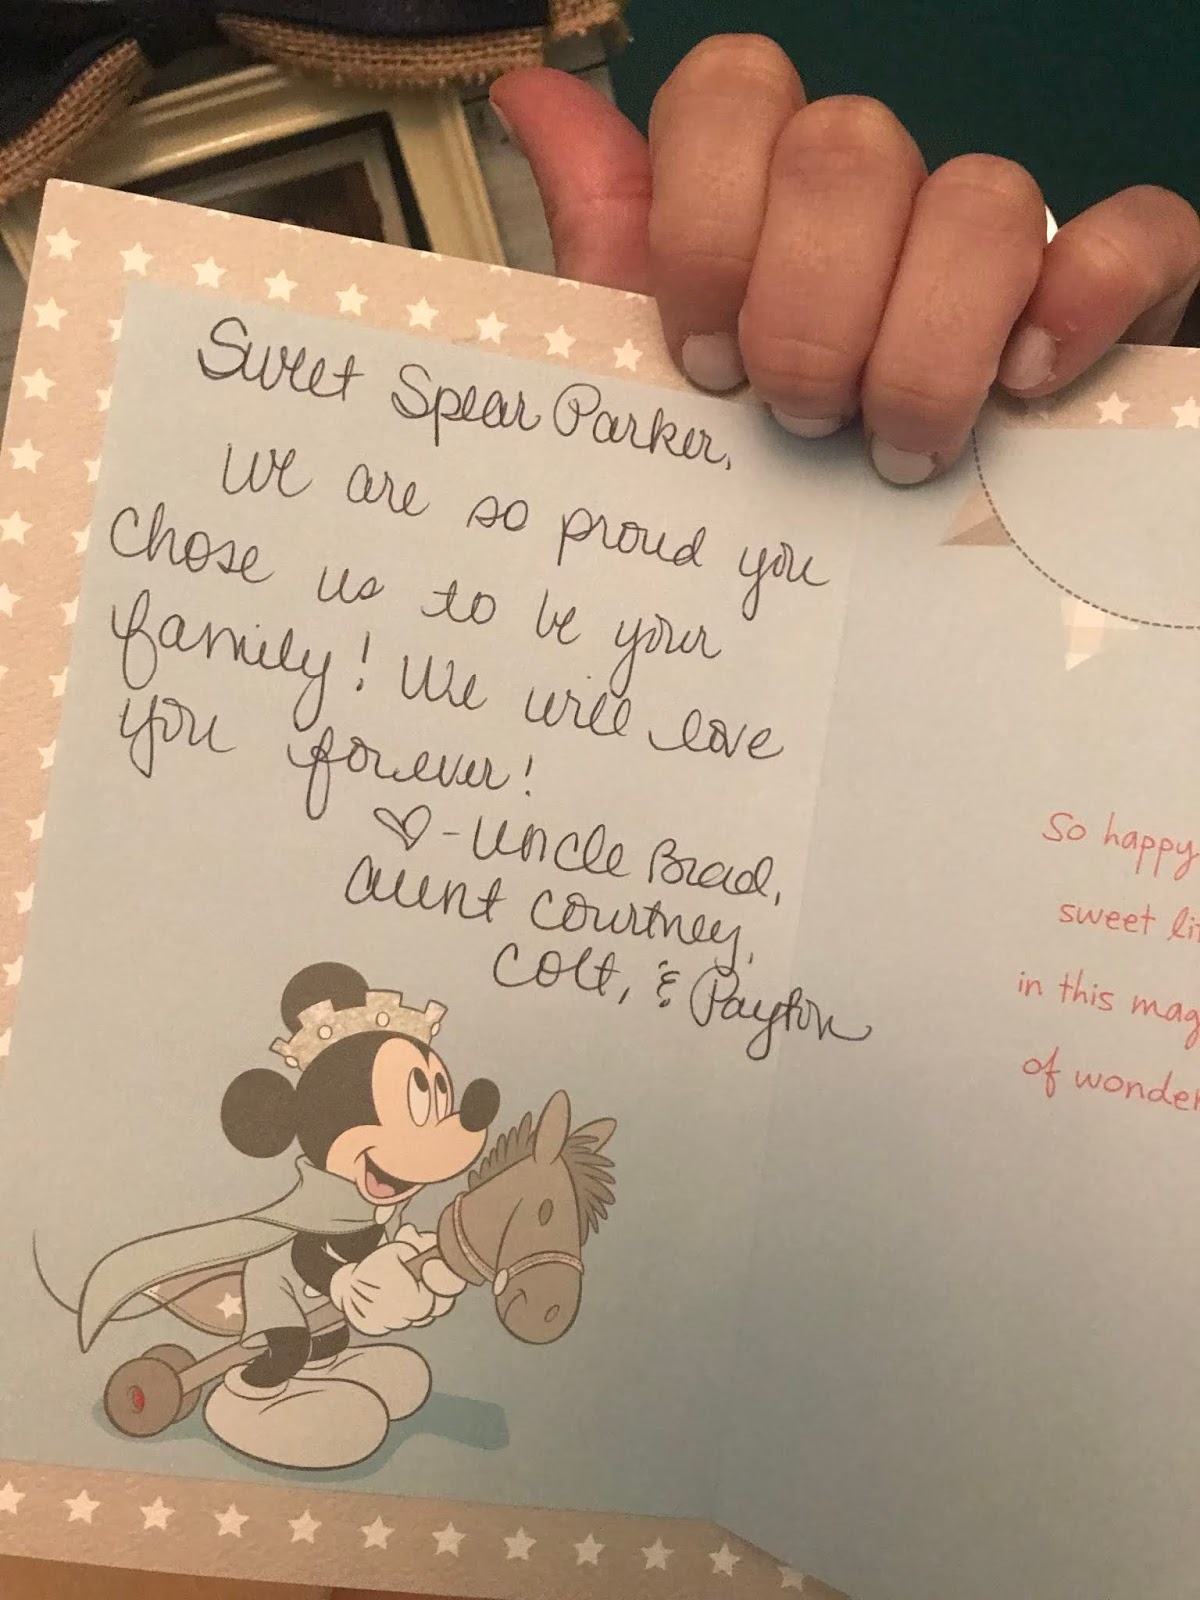 Sweet Spear Parker,
We are so proud you
chose us to be your
family! We will love
you forever!
♡ - Uncle Brad,
Aunt Courtney,
Colt, & Payton
So happy
sweet
in this
of